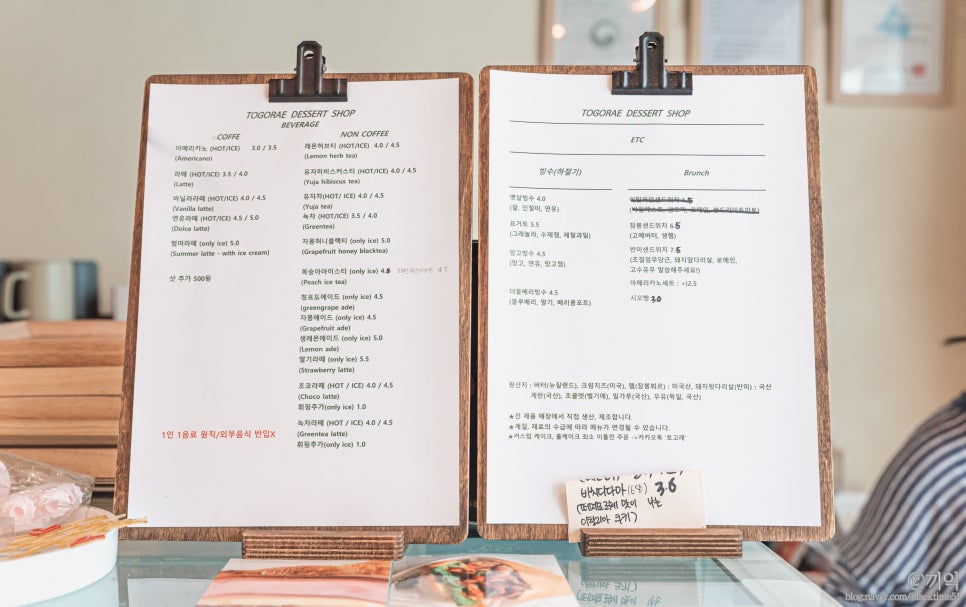 TOGORAE DESSERT SHOP
BEVERAGE
-COFFE
아메리카노 (HOT/ICE) 3.0 / 3.5
(Americano)
라떼 (HOT/ICE) 3.5 / 4.0
(Latte)
바닐라라떼 (HOT/ICE) 4.0 / 4.5
(Vanilla latte)
연유라떼 (HOT/ICE) 4.5 / 5.0
(Dolce latte)
썸머라떼 (only ice) 5.0
(Summer latte - with ice cream)
샷 추가 500원
1인 1음료 원칙/외부음식 반입X
NON COFFEE
레몬허브티 (HOT/ICE) 4.0 / 4.5
(Lemon herb tea)
유자히비스커스티 (HOT/ICE) 4.0 / 4.5
(Yuja hibiscus tea)
유자차(HOT/ICE) 4.0 / 4.5
(Yuja tea)
녹차 (HOT/ICE) 3.5 / 4.0
(Greentea)
자몽허니블랙티 (only ice) 5.0
(Grapefruit honey blacktea)
복숭아아이스티 (only ice) 4.0 4.5
(Peach ice tea)
청포도에이드 (only ice) 4.5
(greengrape ade)
자몽에이드 (only ice) 4.5
(Grapefruit ade)
생레몬에이드 (only ice) 5.0
(Lemon ade)
딸기라떼 (only ice) 5.5
(Strawberry latte)
초코라떼 (HOT / ICE) 4.0 / 4.5
(Choco latte)
휘핑추가(only ice) 1.0
녹차라떼 (HOT / ICE) 4.0 / 4.5
(Greentea latte)
휘핑추가(only ice) 1.0
TOGORAE DESSERT SHOP
ETC
빙수(하절기)
옛날빙수 4.0
(팥, 인절미, 연유)
요거트 5.5
(그래놀라, 수제잼, 제철과일)
망고빙수 4.5
(망고, 연유, 망고잼)
더블베리빙수 4.5
(블루베리, 딸기, 베리콤포트)
Brunch
잠봉샌드위치 6.5
(고메버터, 생햄)
반미샌드위치 7.5
(초절임무당근, 돼지앞다리살, 로메인,
고수유무 말씀해주세요!)
아메리카노세트 : +)2.5
시오빵 3.0
원산지 : 버터(뉴질랜드), 크림치즈(미국), 햄(잠봉뵈르) : 미국산, 돼지뒷다리살(반미) : 국산
계란(국산), 초콜렛(벨기에), 밀가루(국산), 우유(독일, 국산)
★전 제품 매장에서 직접 생산, 제조합니다.
★계절, 재료의 수급에 따라 메뉴가 변경될 수 있습니다.
★커스텀 케이크, 홀케이크 최소 이틀전 주문 ->카카오톡 '토고래'
바치디다마 3.6
이탈리아 쿠키)
©기억
blog.naver.com/lilacktime51